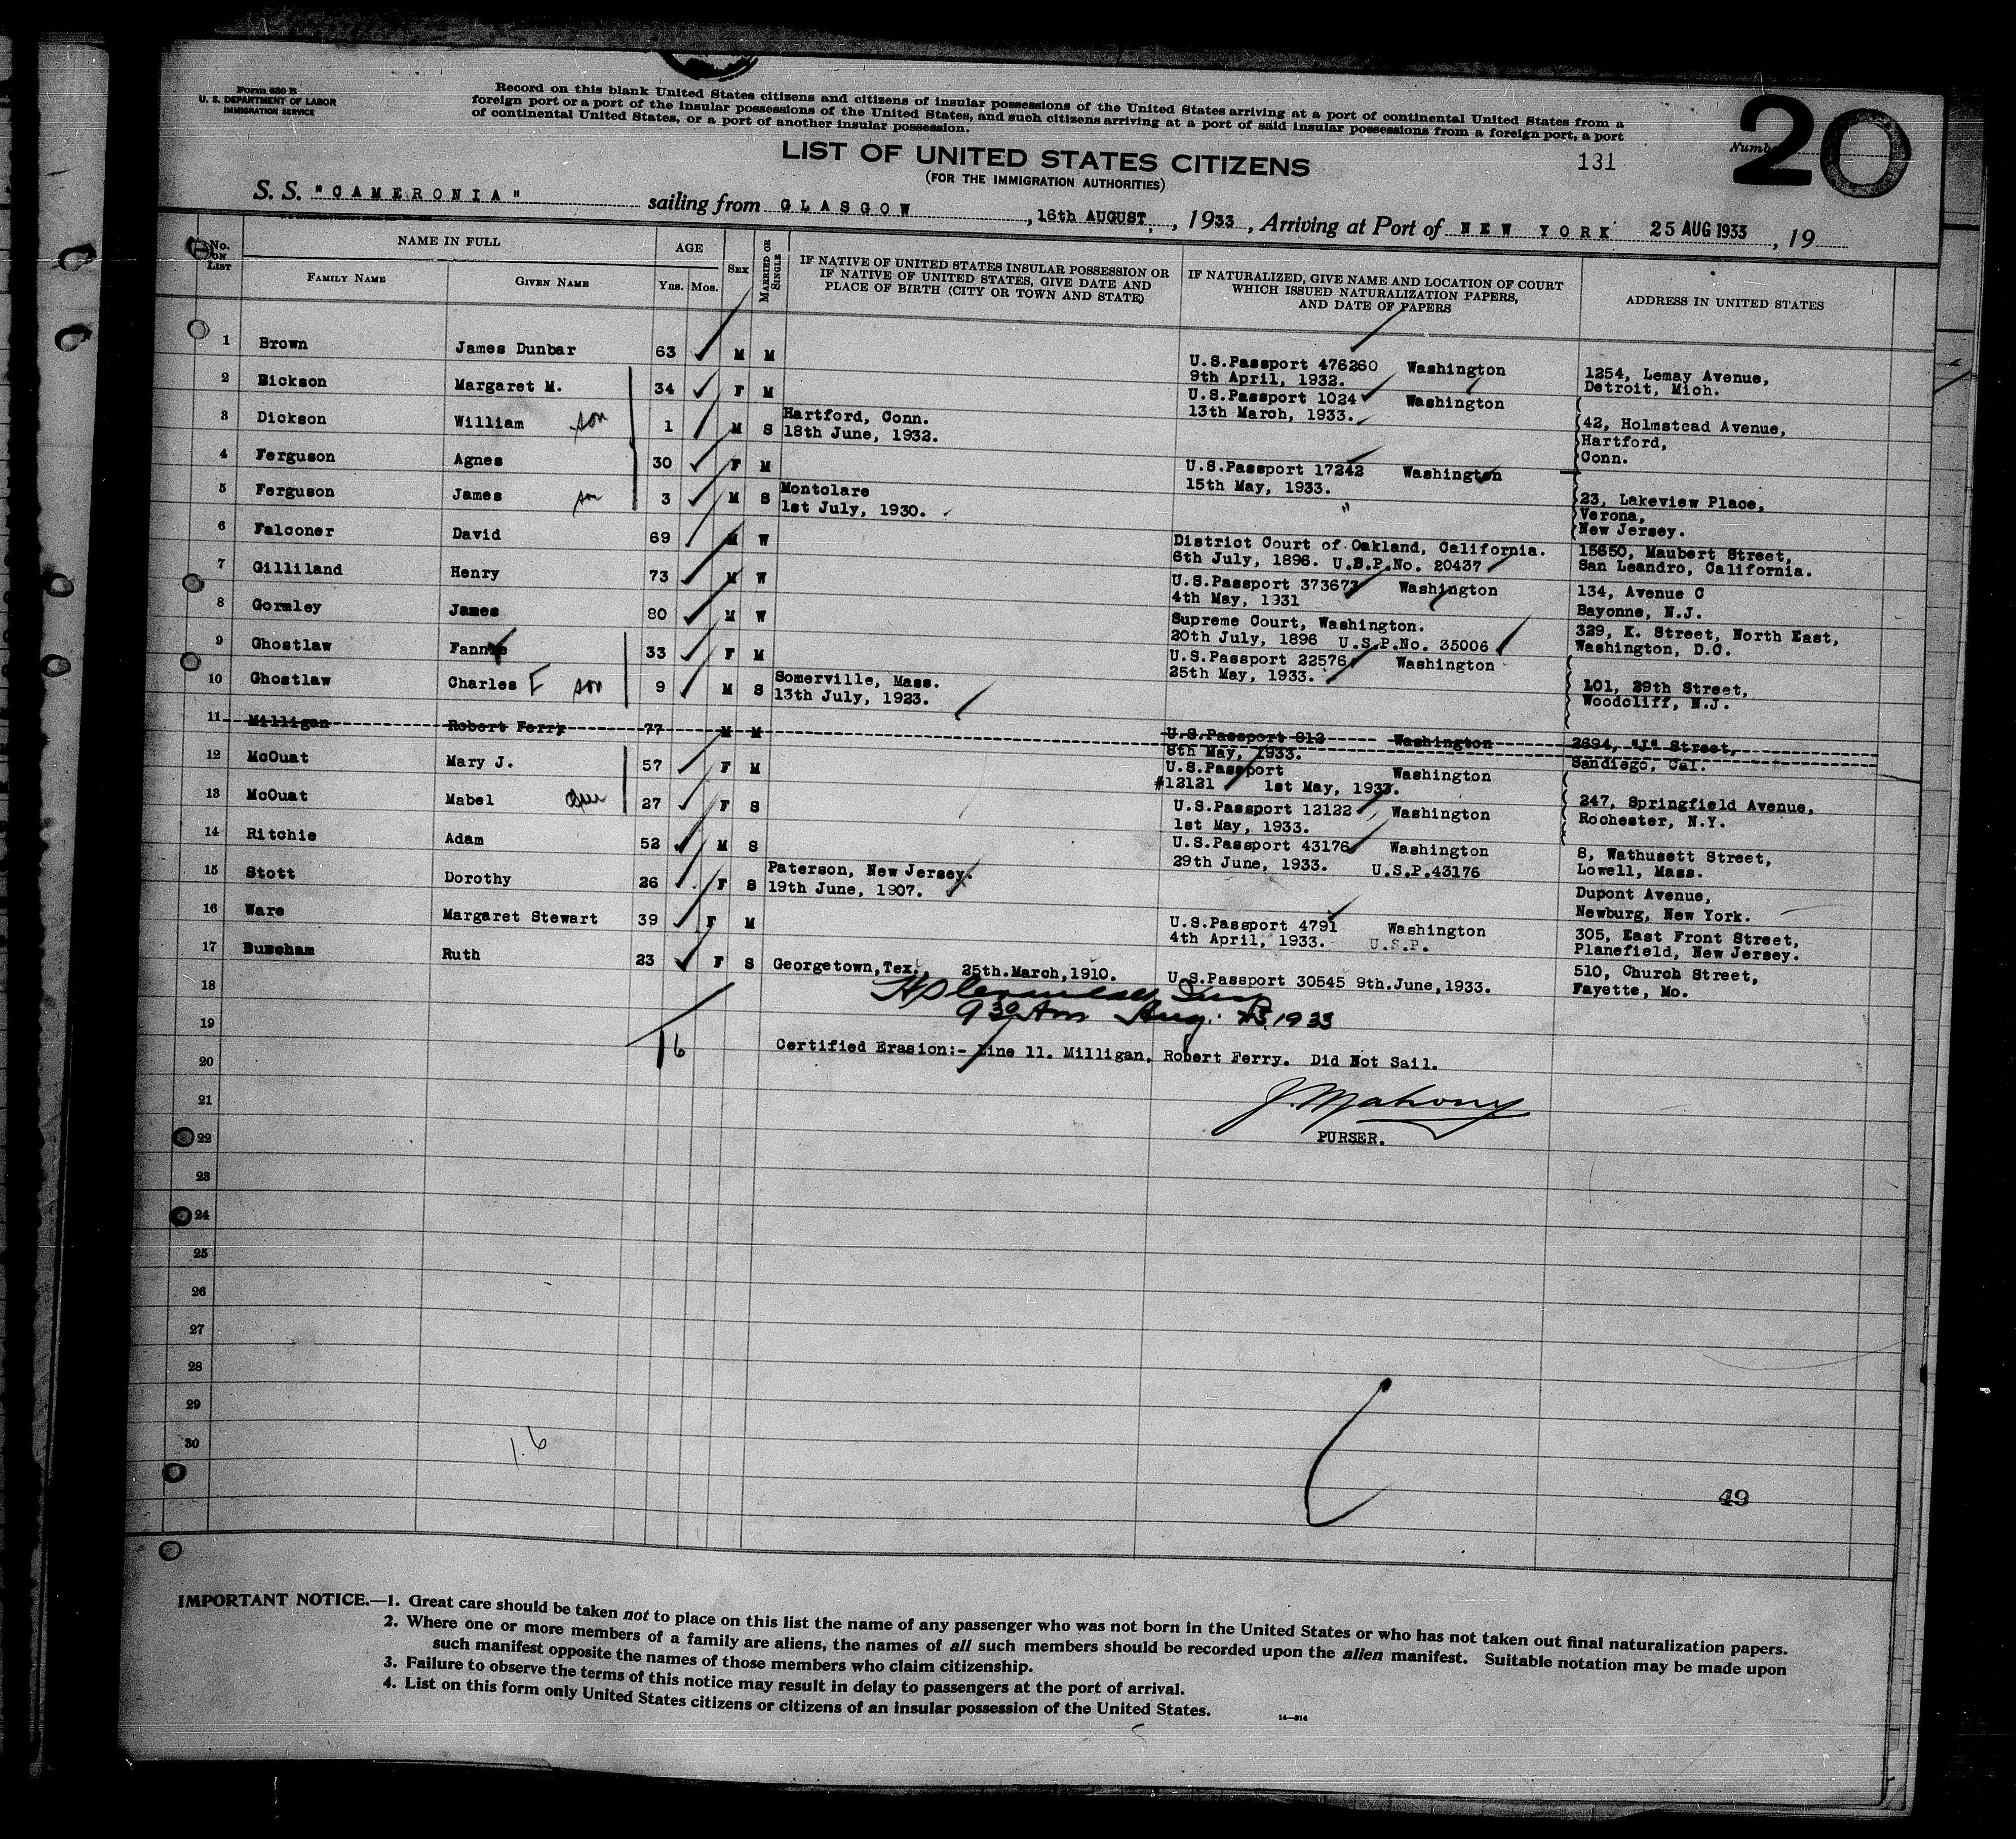 Form 630 B
U. S. DEPARTMENT OF LABOR
IMMIGRATION SERVICE
Record on this blank United States citizens and citizens of insular possessions of the United States arriving at a port of continental United States from a
foreign port or a port of the insular possessions of the United States, and such citizens arriving at a port of said insular possessions from a foreign port, a port
of continental United States, or a port of another insular possession.
20
LIST OF UNITED STATES CITIZENS
131
(FOR THE IMMIGRATION AUTHORITIES)
S. S. "CAMERONIA" sailing from GLASGOW, 16th AUGUST, 1933, Arriving at Port of NEW YORK 25 AUG 1933, 19
No. ON LIST NAME IN FULL AGE SEX MARRIED OR SINGLE IF NATIVE OF UNITED STATES INSULAR POSSESSION OR IF NATIVE OF UNITED STATES, GIVE DATE AND PLACE OF BIRTH (CITY OR TOWN AND STATE) IF NATURALIZED, GIVE NAME AND LOCATION OF COURT WHICH ISSUED NATURALIZATION PAPERS, AND DATE OF PAPERS ADDRESS IN UNITED STATES
FAMILY NAME GIVEN NAME YRS. MOS.
1 Brown James Dunbar 63 M M U.S.Passport 476260 Washington 9th April, 1932. 1254, Lemay Avenue, Detroit, Mich.
2 Dickson Margaret M. 34 F M U.S.Passport 1024 Washington 13th March, 1933.
3 Dickson William son 1 M S Hartford, Conn. 18th June, 1932. 42, Holmstead Avenue, Hartford, Conn.
4 Ferguson Agnes 30 F M U.S.Passport 17242 Washington 15th May, 1933.
5 Ferguson James son 3 M S Montclare 1st July, 1930. " 23, Lakeview Place, Verona, New Jersey.
6 Falconer David 69 M W District Court of Oakland, California. 6th July, 1896. U.S.P.No. 20437 15650, Maubert Street, San Leandro, California.
7 Gilliland Henry 73 M W U.S.Passport 373673 Washington 4th May, 1931 134, Avenue C Bayonne, N.J.
8 Gormley James 80 M W Supreme Court, Washington. 20th July, 1896 U.S.P.No. 35006 329, K. Street, North East, Washington, D.C.
9 Ghostlaw Fannie 33 F M U.S.Passport 22576 Washington 25th May, 1933.
10 Ghostlaw Charles E son 9 M S Somerville, Mass. 13th July, 1923. 101, 29th Street, Woodcliff, N.J.
11 Milligan Robert Ferry 77 M M U.S.Passport 812 Washington 8th May, 1933. 2694, "J" Street, Sandiego, Cal.
12 McOuat Mary J. 57 F M U.S.Passport Washington #12121 1st May, 1933.
13 McOuat Mabel 27 F S U.S.Passport 12122, Washington 1st May, 1933. 247, Springfield Avenue, Rochester, N.Y.
14 Ritchie Adam 52 M S U.S.Passport 43176 Washington 29th June, 1933. U.S.P.43176 8, Wathusett Street, Lowell, Mass.
15 Stott Dorothy 26 F S Paterson, New Jersey. 19th June, 1907. Dupont Avenue, Newburg, New York.
16 Ware Margaret Stewart 39 F M U.S.Passport 4791 Washington 4th April, 1933. U.S.P. 305, East Front Street, Planefield, New Jersey.
17 Ruth 23 F S Georgetown,Tex., 25th.March,1910. U.S.Passport 30545 9th.June,1933. 510, Church Street, Fayette, Mo.
18
19 9 30 Am Aug. 25 1933
16
Certified Erasion:- Line 11. Milligan, Robert Ferry. Did Not Sail.
20
21 J. Mahony
22 PURSER.
23
24
25
26
27
28
29
30
16
49
IMPORTANT NOTICE.—1. Great care should be taken not to place on this list the name of any passenger who was not born in the United States or who has not taken out final naturalization papers.
2. Where one or more members of a family are aliens, the names of all such members should be recorded upon the alien manifest. Suitable notation may be made upon
such manifest opposite the names of those members who claim citizenship.
3. Failure to observe the terms of this notice may result in delay to passengers at the port of arrival.
4. List on this form only United States citizens or citizens of an insular possession of the United States.
14—814